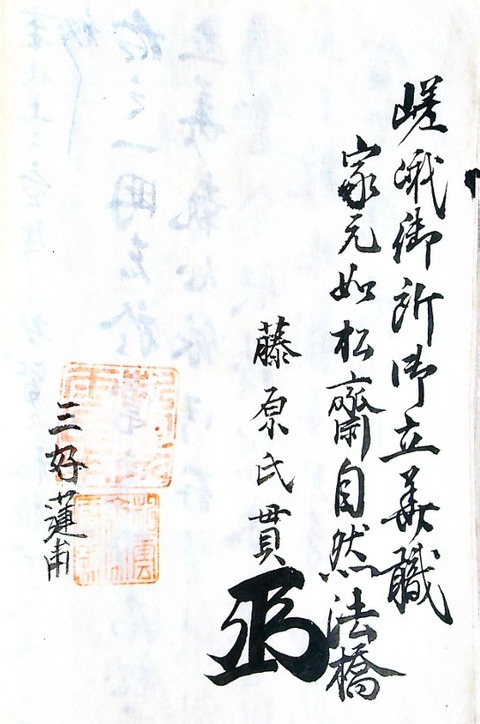 嵯峨御所御立華職
家元如松齋自然法橋
藤原氏貫
三好蓮甫